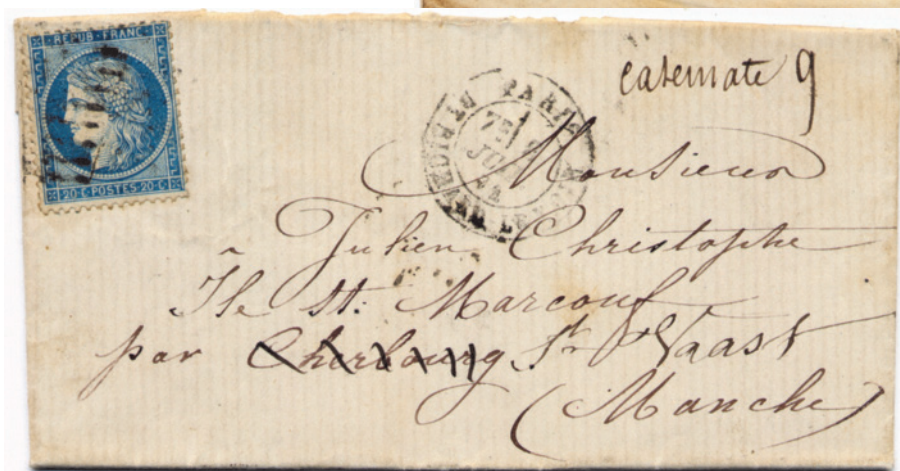 REPUB·FRANC·
20·C·POSTES·20·C
casemate 9
PARIS
7E
Monsieur
Julien Christophe
à
Ile St. Marcouf
par Cherbourg St Vaast
(Manche)